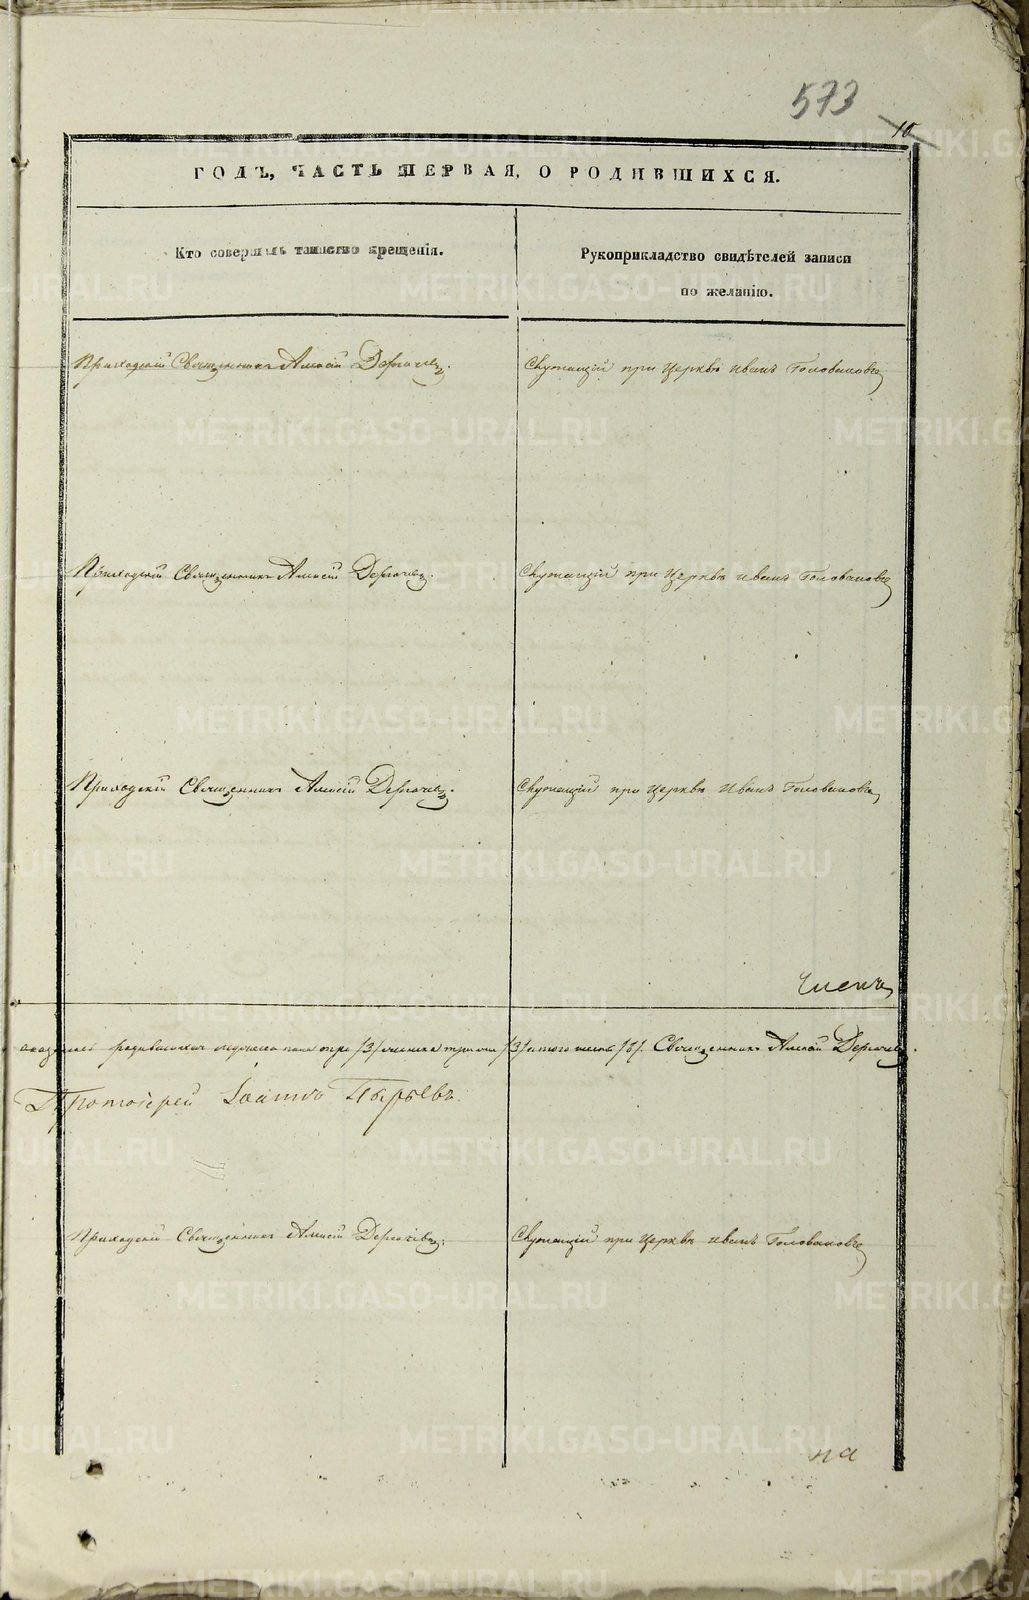 573
10
ГОДЪ, ЧАСТЬ ПЕРВАЯ, О РОДИВШИХСЯ.
Кто совершалъ таинство крещенія.
Рукоприкладство свидѣтелей записи
по желанію.
Приходскій Священникъ Алексій Дергачевъ.
Служащій при Церквѣ Иванъ Головановъ
Приходскій Священникъ Алексій Дергачевъ.
Служащій при Церквѣ Иванъ Головановъ
Приходскій Священникъ Алексій Дергачевъ.
Служащій при Церквѣ Иванъ Головановъ
Членъ
родившихся мужеска пола три /3/ женска три /3/ Священникъ Алексій Дергачевъ.
Протоіерей Іоаннъ Пырьевъ.
Приходскій Священникъ Алексій Дергачевъ.
Служащій при Церквѣ Иванъ Головановъ
на
METRIKI.GASO-URAL.RU